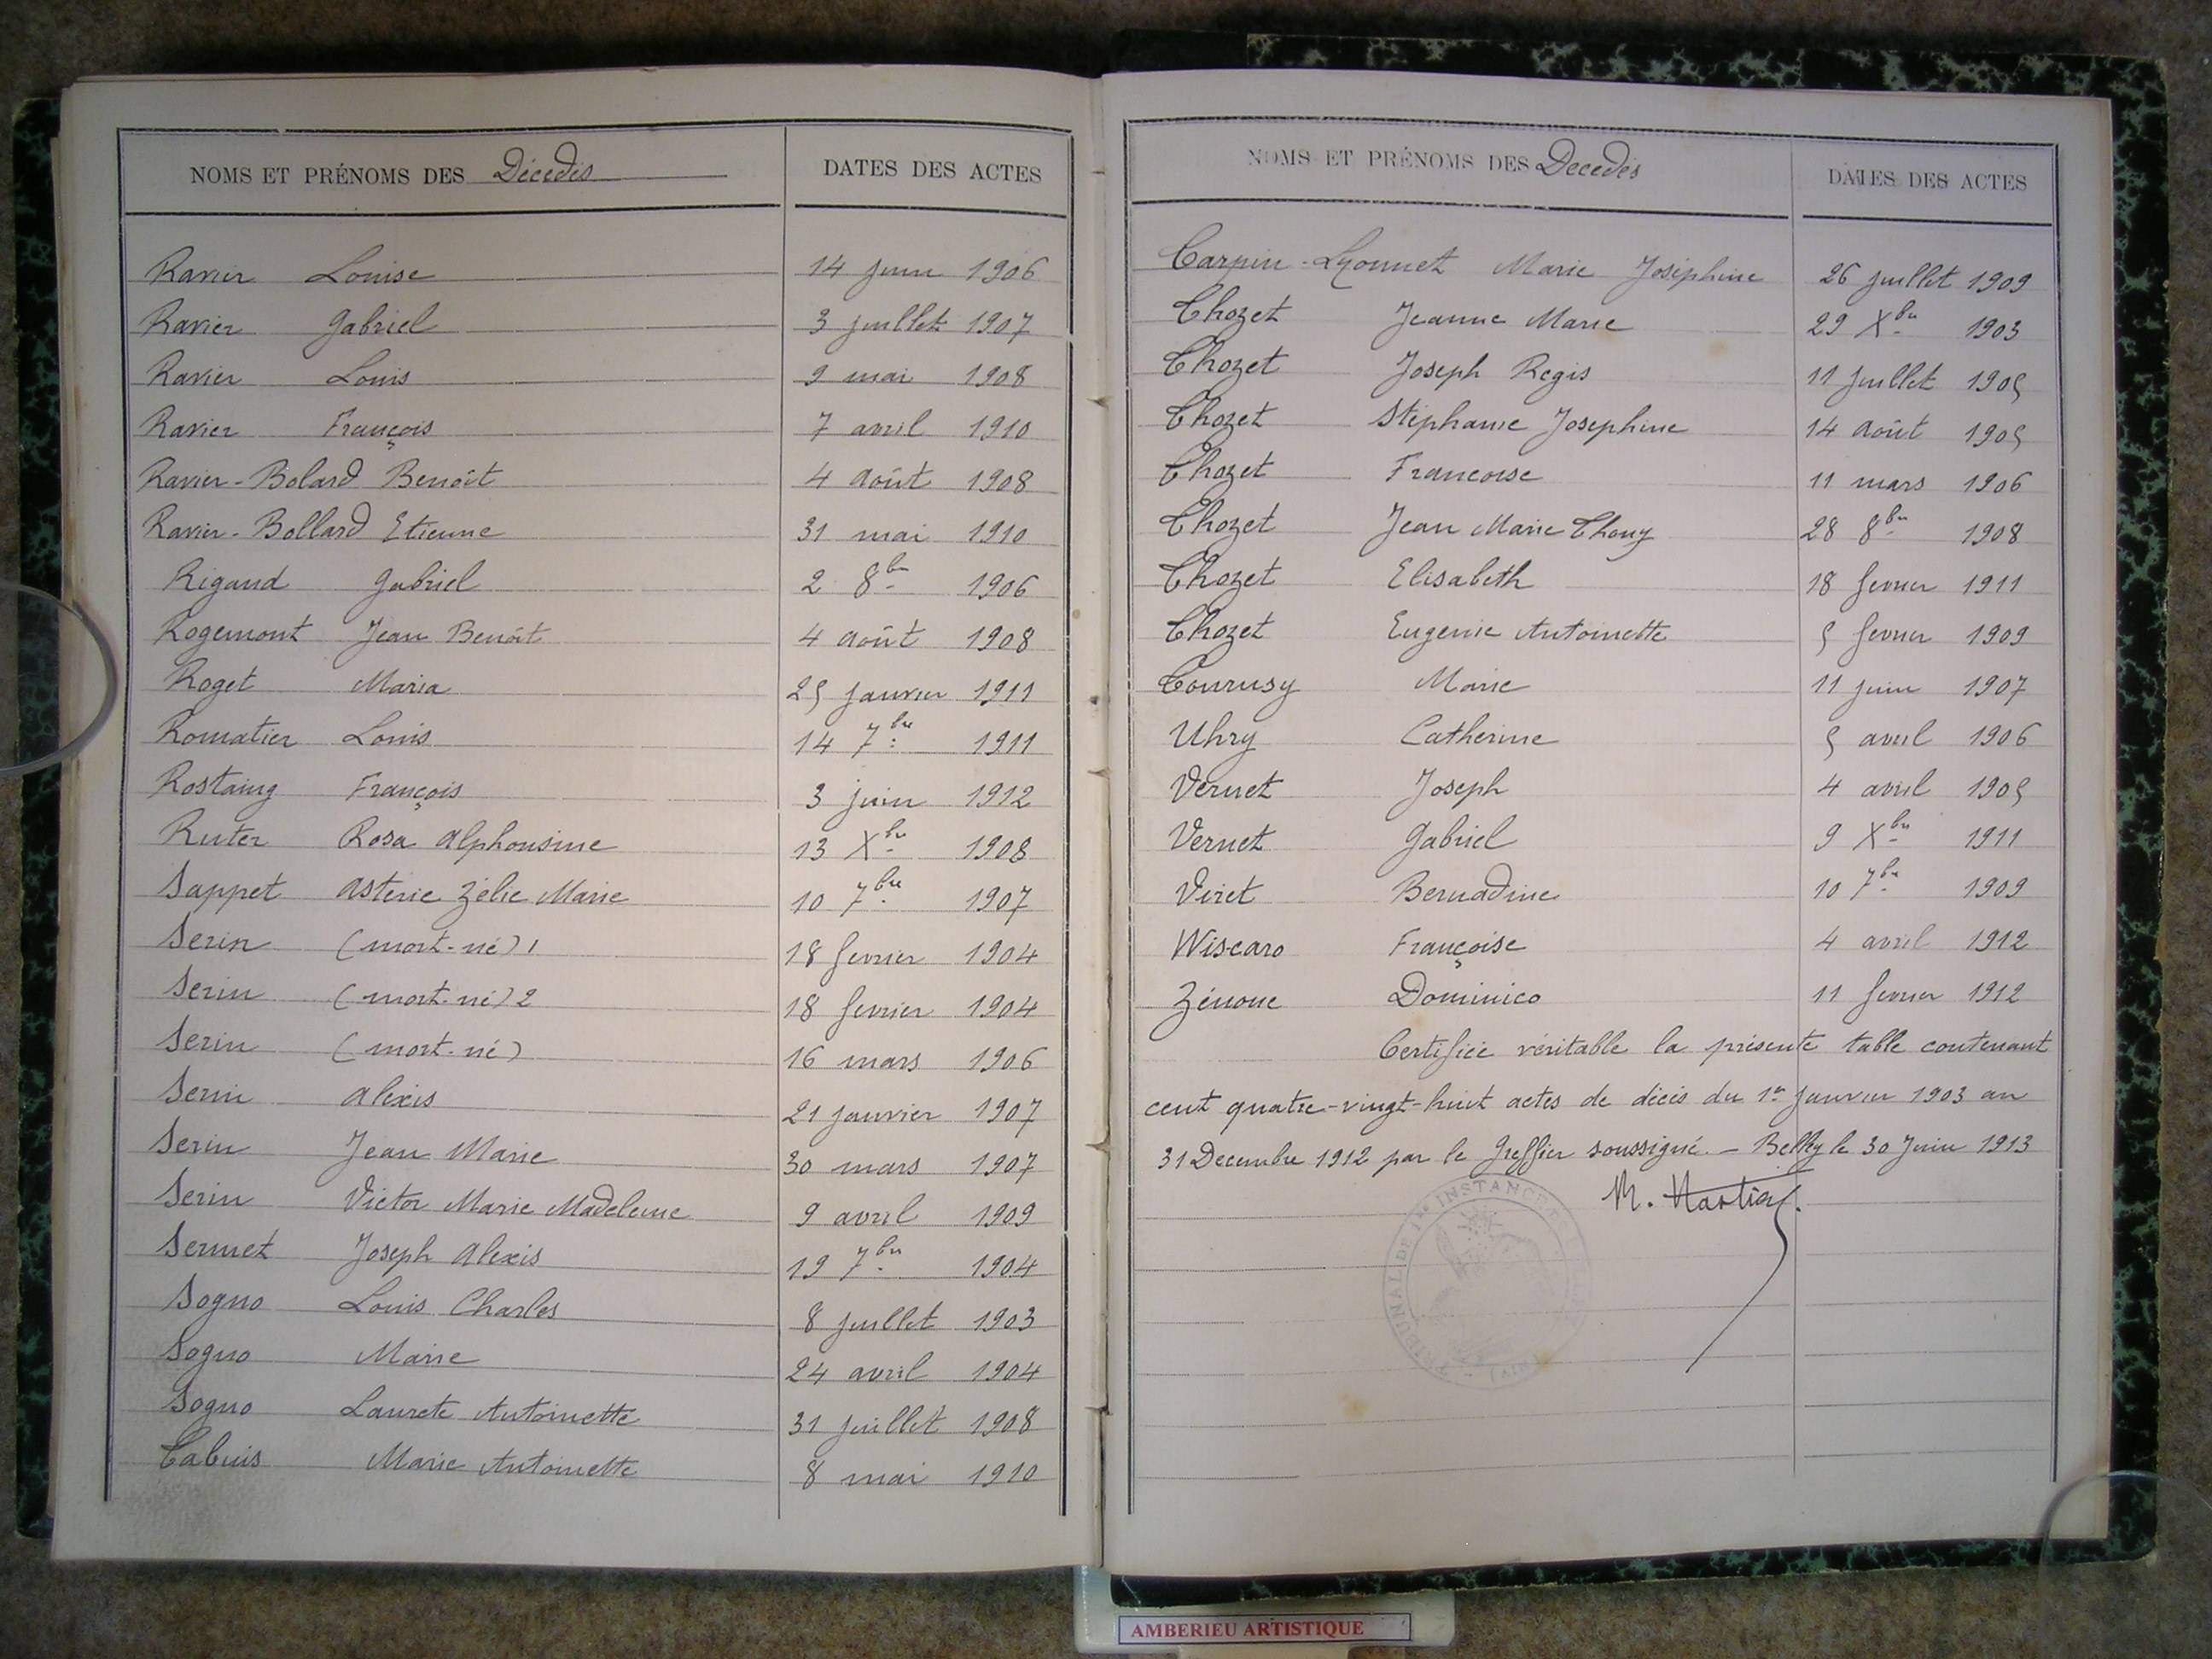 NOMS ET PRÉNOMS DES Décédés DATES DES ACTES
Ravier Louise 14 juin 1906
Ravier Gabriel 3 juillet 1907
Ravier Louis 9 mai 1908
Ravier François 7 avril 1910
Ravier-Bolard Benoît 4 août 1908
Ravier-Bollard Etienne 31 mai 1910
Rigaud Gabriel 2 8bre 1906
Rogemont Jean Benoît 4 août 1908
Roget Maria 25 janvier 1911
Romatier Louis 14 7bre 1911
Rostaing François 3 juin 1912
Ruter Rosa Alphonsine 13 Xbre 1908
Sappet Asterie Zélie Marie 10 7bre 1907
Serin (mort-né) 1 18 fevrier 1904
Serin (mort-né) 2 18 fevrier 1904
Serin (mort-né) 16 mars 1906
Serin Alexis 21 janvier 1907
Serin Jean Marie 30 mars 1907
Serin Victor Marie Madeleine 9 avril 1909
Sermet Joseph Alexis 19 7bre 1904
Sogno Louis Charles 8 juillet 1903
Sogno Marie 24 avril 1904
Sogno Laurete Antoinette 31 juillet 1908
Tabuis Marie Antoinette 8 mai 1910
NOMS ET PRÉNOMS DES Decedés DATES DES ACTES
Tarpin-Lyonnet Marie Joséphine 26 juillet 1909
Thozet Jeanne Marie 29 Xbre 1903
Thozet Joseph Regis 11 juillet 1905
Thozet Stéphanie Josephine 14 août 1905
Thozet Francoise 11 mars 1906
Thozet Jean Marie Thony 28 8bre 1908
Thozet Elisabeth 18 fevrier 1911
Thozet Eugenie Antoinette 5 fevrier 1909
Tournsy Marie 11 juin 1907
Uhry Catherine 5 avril 1906
Vernet Joseph 4 avril 1905
Vernet Gabriel 9 Xbre 1911
Viret Bernadine 10 7bre 1909
Wiscaro Françoise 4 avril 1912
Zénone Dominico 11 fevrier 1912
Certifiée véritable la présente table contenant
cent quatre-vingt-huit actes de décès du 1er Janvier 1903 au
31 Decembre 1912 par le Greffier soussigné. — Belley le 30 Juin 1913
TRIBUNAL DE 1re INSTANCE
AMBERIEU ARTISTIQUE